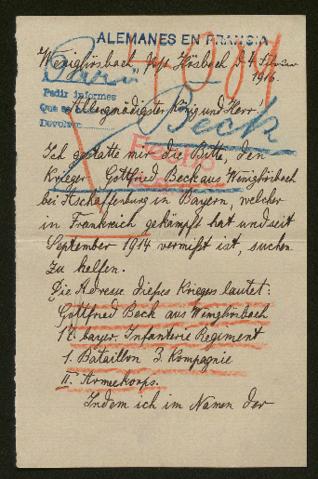 ALEMANES EN FRANCIA
Wenighösbach, Post Hösbach d. 4. Februar
1916.
Pedir informes
Que se
Devolver
Allergnädigster König und Herr!
Beck
Ich gestatte mir die Bitte, den
Krieger Gottfried Beck aus Wenighösbach
bei Aschaffenburg in Bayern, welcher
in Frankreich gekämpft hat und seit
September 1914 vermißt ist, suchen
zu helfen.
Die Adresse dieses Kriegers lautet:
Gottfried Beck aus Wenighösbach
bayer. Infanterie Regiment
1. Bataillon 3. Kompagnie
II. Armeekorps.
Indem ich im Namen der